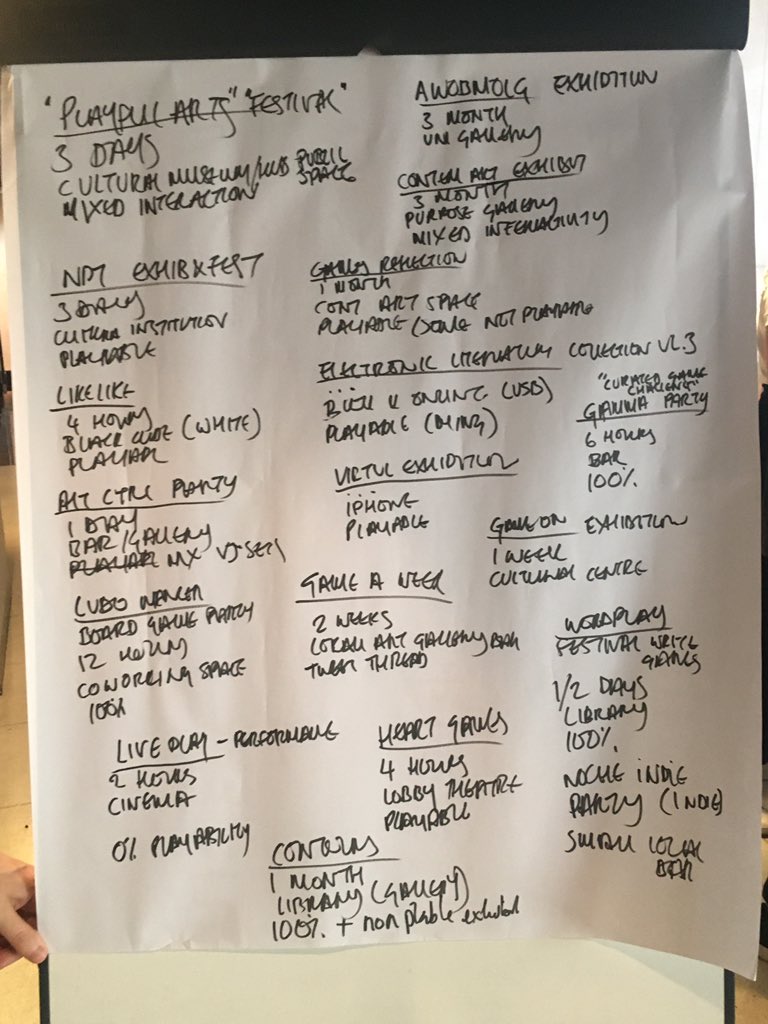 "PLAYFUL ARTS" "FESTIVAL"
3 DAYS
CULTURAL MUSEUM/HUB PUBLIC SPACE
MIXED INTERACTION
AWOBMOLG EXHIBITION
3 MONTH
UNI GALLERY
CONTEM ART EXHIBIT
3 MONTH
PURPOSE GALLERY
MIXED INTERACTIVITY
EXHIB & FEST
3 DAYS
CULTURA INSTITUTION
PLAYABLE
GAMES REFLECTION
1 MONTH
CONT ART SPACE
PLAYABLE/SOME NOT PLAYABLE
LIKELIKE
4 HOURS
BLACK CUBE (WHITE)
PLAYABL
ELECTRONIC LITERATURE COLLECTION VL.3
ONLINE (USB)
PLAYABLE
"CURATED GAME CHALLENGE"
GAMMA PARTY
6 HOURS
BAR
100%
ALT CTRL PARTY
1 DAY
BAR/GALLERY
PLAYABL MX VJ SETS
VIRTUL EXHIBITION
IPHONE
PLAYABLE
GAME ON EXHIBITION
1 WEEK
CULTURAL CENTRE
LUDO
BOARD GAME PARTY
12 HOURS
COWORKING SPACE
100%
GAME A WEEK
2 WEEKS
LOCAL ART GALLERY BAR
THREAD
WORDPLAY
FESTIVAL WRITE GAMES
1/2 DAYS
LIBRARY
100%
LIVE PLAY - PERFORMANCE
2 HOURS
CINEMA
0% PLAYABILITY
HEART GAMES
4 HOURS
LOBBY THEATRE
PLAYABLE
NOCHE INDIE
PARTY (INDIE)
SMALL LOCAL
BAR
1 MONTH
LIBRARY (GALLERY)
100% + non plable